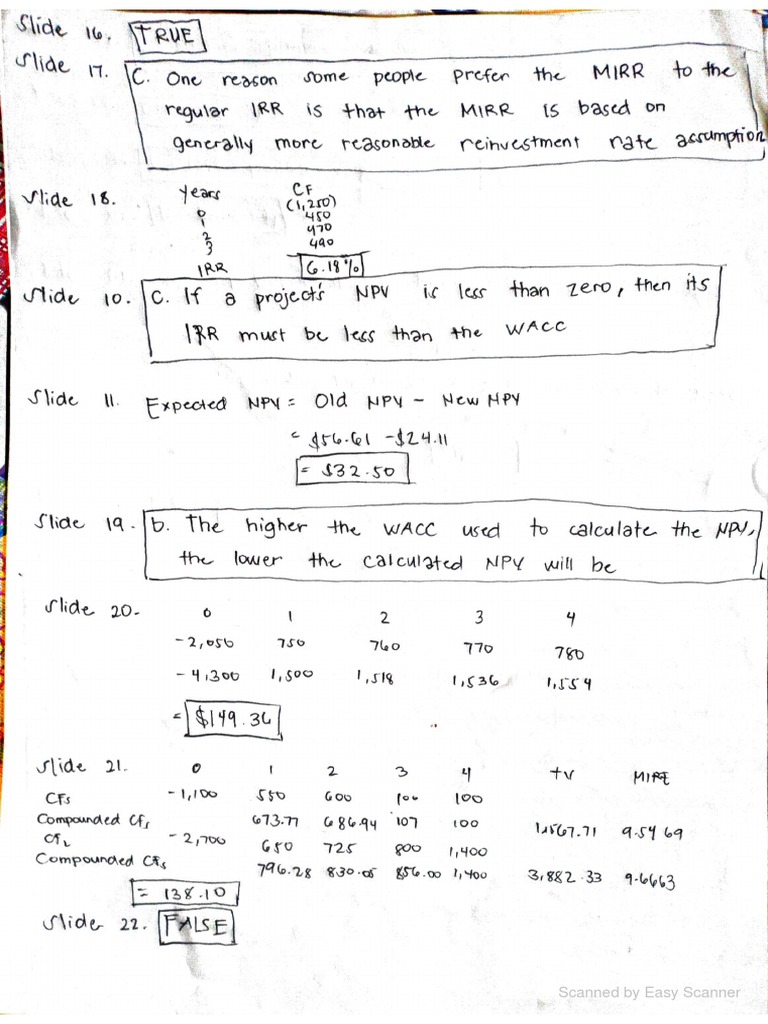 Slide 16. TRUE
Slide 17. C. One reason some people prefer the MIRR to the
regular IRR is that the MIRR is based on
generally more reasonable reinvestment rate assumption
Slide 18. Years CF
0 (1,250)
1 450
2 470
3 490
IRR 6.18%
Slide 10. C. If a project's NPV is less than zero, then its
IRR must be less than the WACC
Slide 11. Expected NPV = Old NPV - New NPV
= $56.61 - $24.11
= $32.50
Slide 19. b. The higher the WACC used to calculate the NPV,
the lower the calculated NPV will be
Slide 20. 0 1 2 3 4
-2,050 750 760 770 780
-4,300 1,500 1,518 1,536 1,554
= $149.36
Slide 21. 0 1 2 3 4 TV MIRR
CFs -1,100 550 600 100 100
Compounded CFs 673.77 686.94 107 100 1,567.71 9.5469
CF2 -2,700 650 725 800 1,400
Compounded CFs 796.28 830.05 856.00 1,400 3,882.33 9.6663
= 138.10
Slide 22. FALSE
Scanned by Easy Scanner